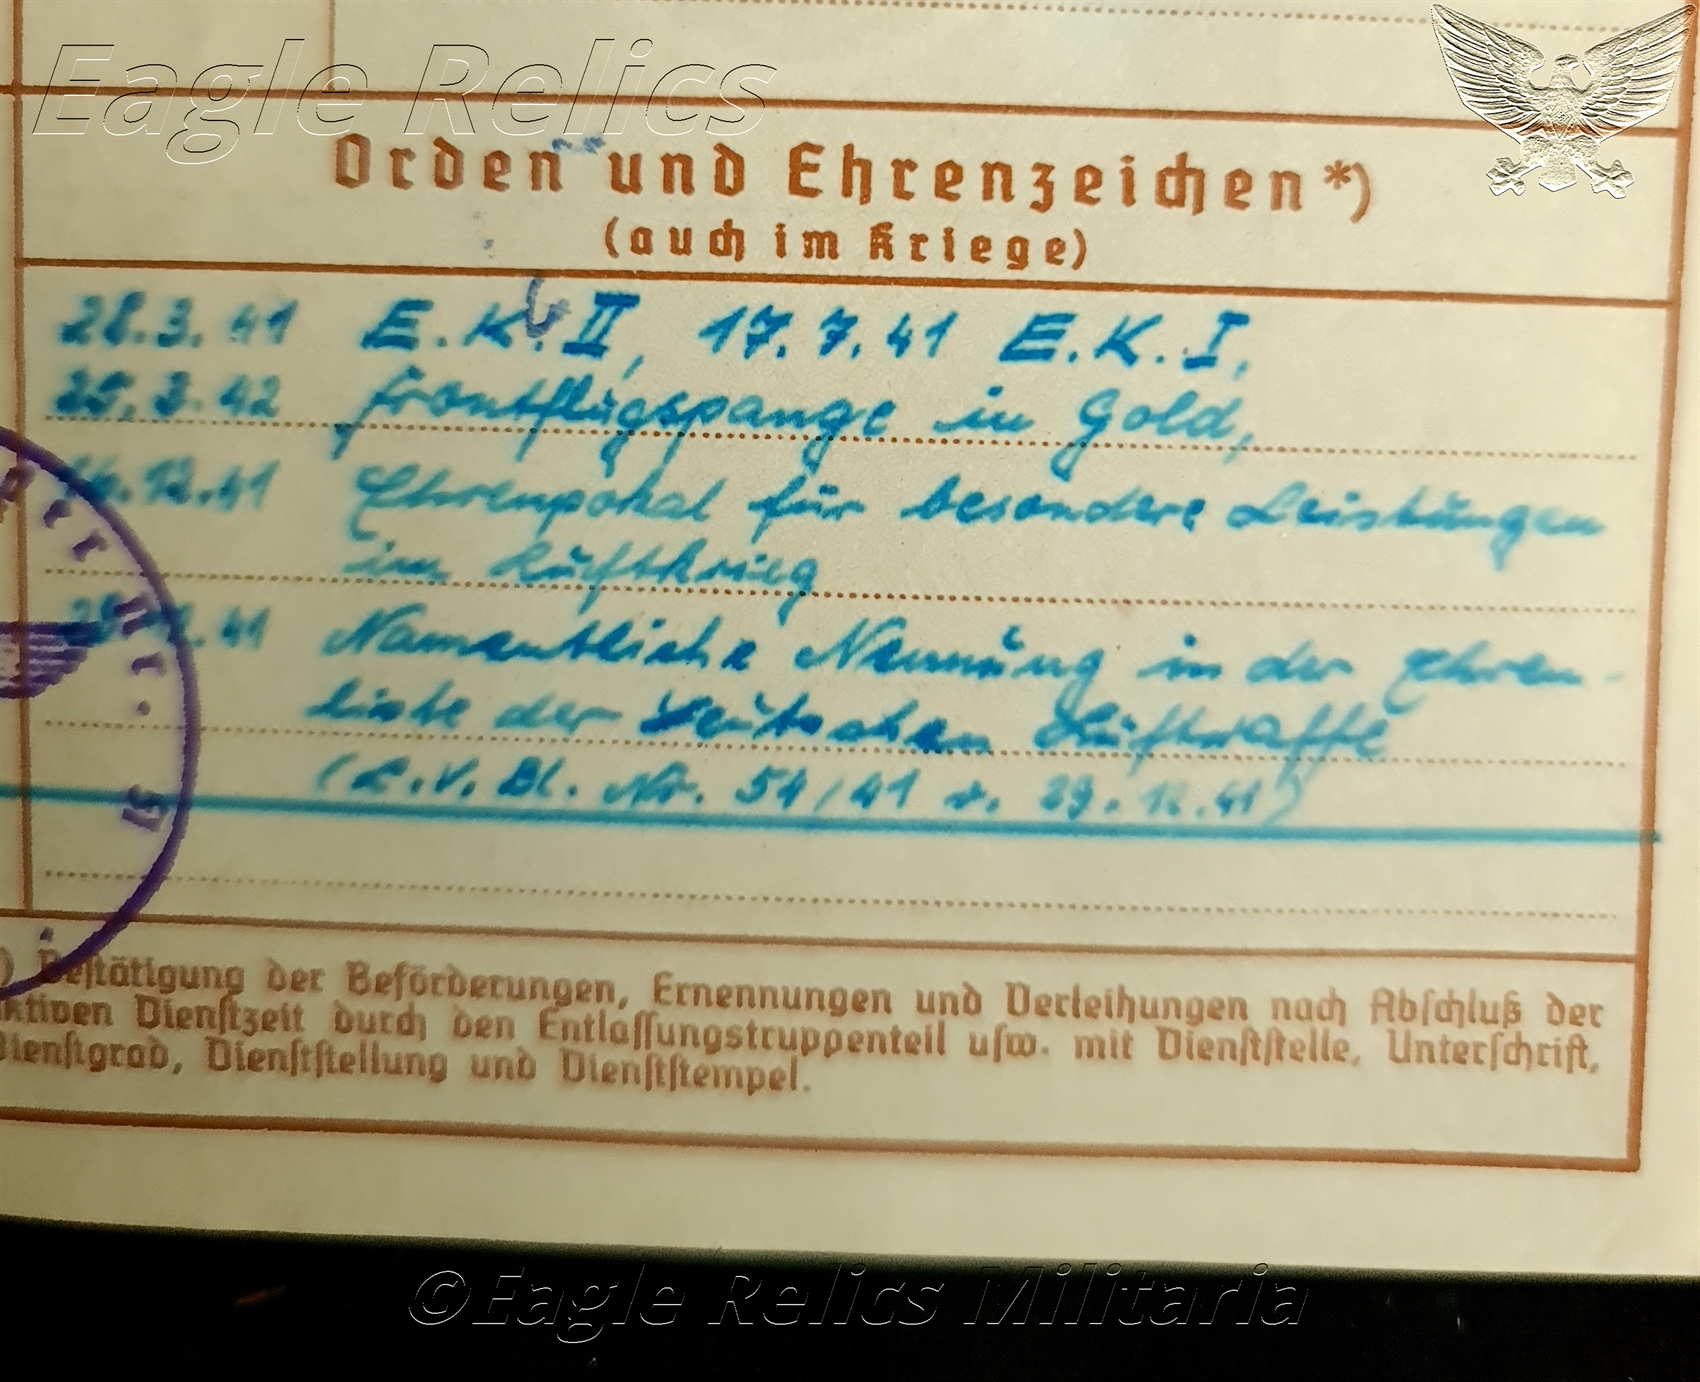 Eagle Relics
Orden und Ehrenzeichen*)
(auch im Kriege)
28.3.41 E.K. II, 17.7.41 E.K. I,
25.3.42 Frontflugspange in Gold,
.12.41 Ehrenpokal für besondere Leistungen
im Luftkrieg
.41 Namentliche Nennung in der Ehren-
liste der Deutschen Luftwaffe
(L.V. Bl. Nr. 54/41 v. 29.12.41)
) Bestätigung der Beförderungen, Ernennungen und Verleihungen nach Abschluß der
aktiven Dienstzeit durch den Entlassungstruppenteil usw. mit Dienststelle, Unterschrift,
Dienstgrad, Dienststellung und Dienststempel.
©Eagle Relics Militaria